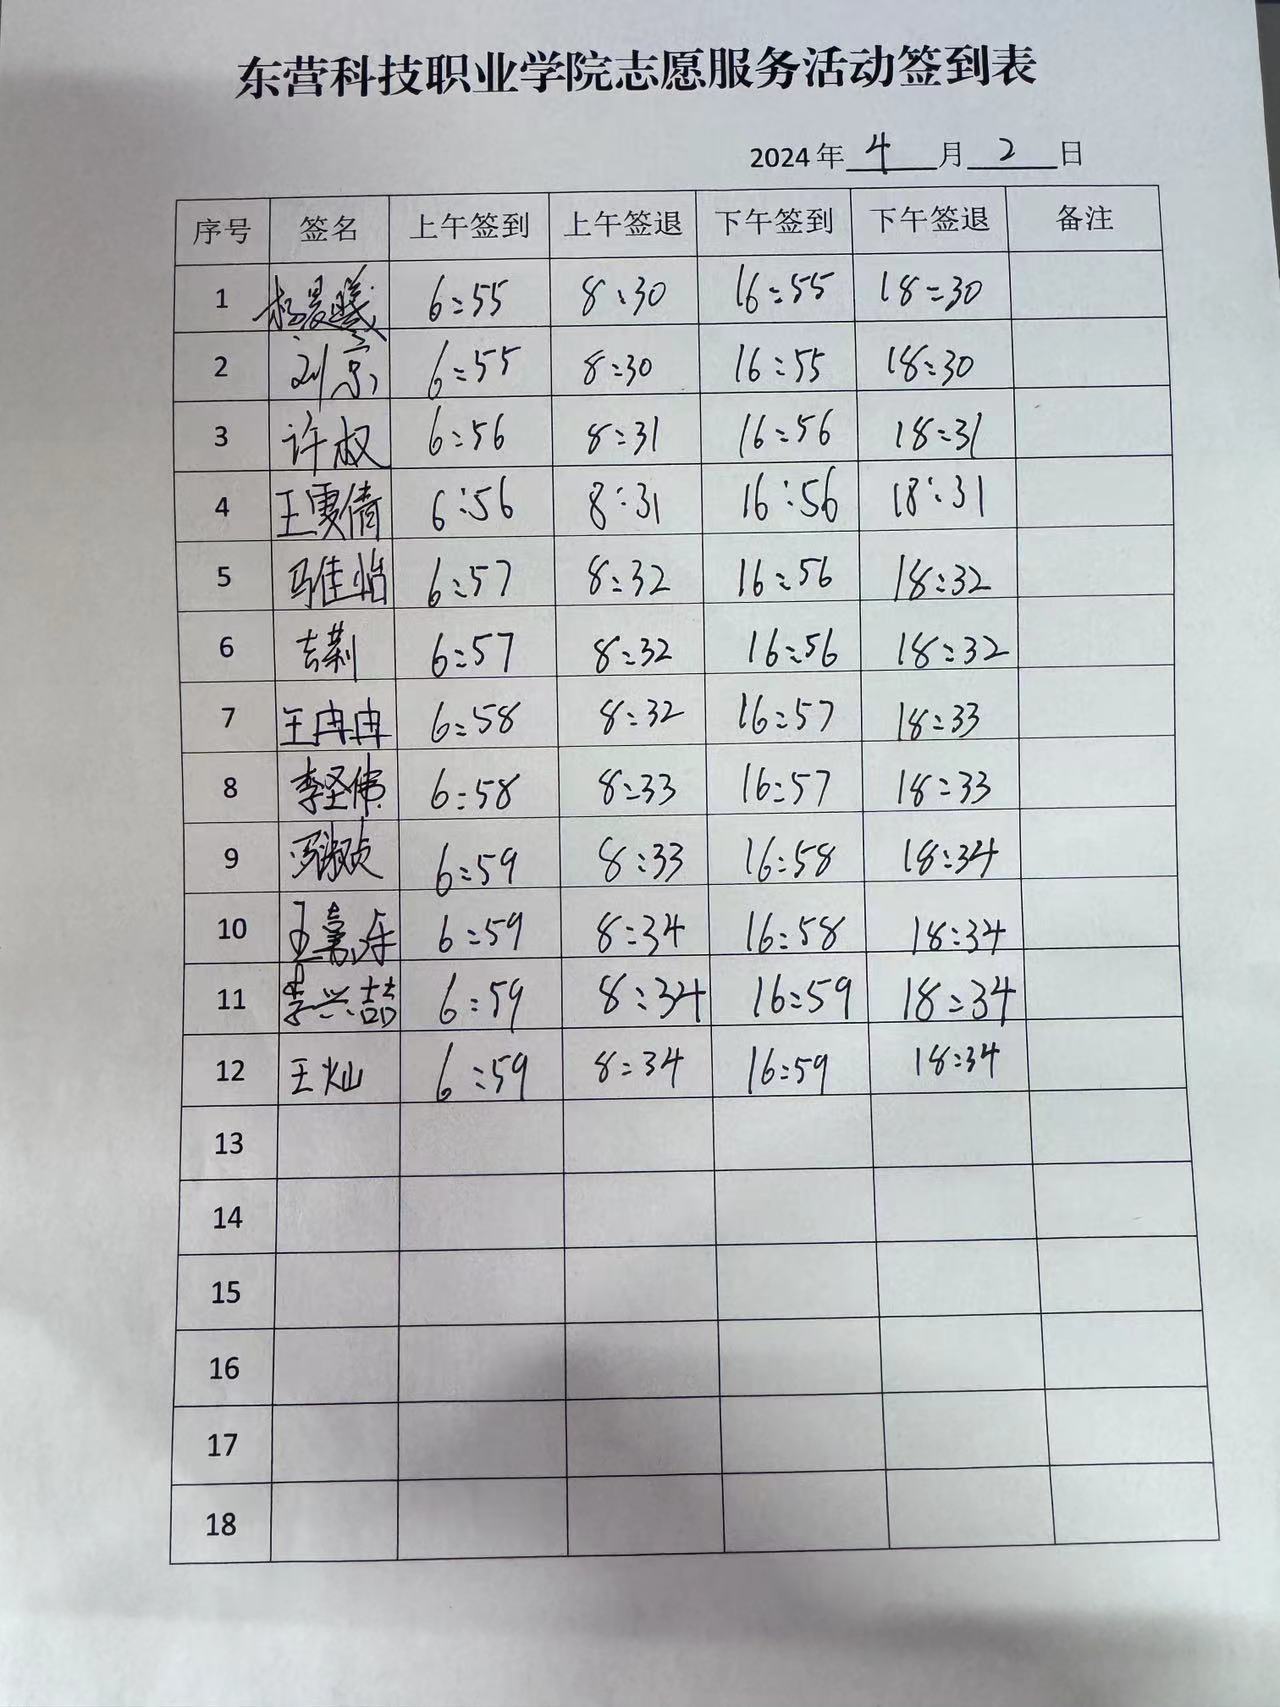 东营科技职业学院志愿服务活动签到表
2024年 4 月 2 日
序号 签名 上午签到 上午签退 下午签到 下午签退 备注
1 杨晨曦 6:55 8:30 16:55 18:30
2 刘京 6:55 8:30 16:55 18:30
3 许叔 6:56 8:31 16:56 18:31
4 王雯倩 6:56 8:31 16:56 18:31
5 马佳怡 6:57 8:32 16:56 18:32
6 6:57 8:32 16:56 18:32
7 王冉冉 6:58 8:32 16:57 18:33
8 李圣伟 6:58 8:33 16:57 18:33
9 6:59 8:33 16:58 18:34
10 6:59 8:34 16:58 18:34
11 李兴喆 6:59 8:34 16:59 18:34
12 王灿 6:59 8:34 16:59 18:34
13
14
15
16
17
18